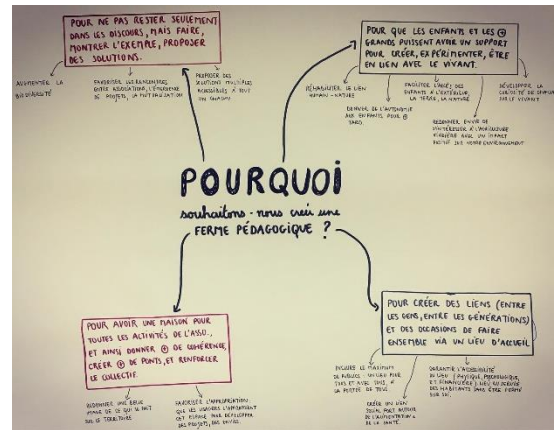 POUR NE PAS RESTER SEULEMENT
DANS LES DISCOURS, MAIS FAIRE,
MONTRER L'EXEMPLE, PROPOSER
DES SOLUTIONS.
AUGMENTER LA
BIODIVERSITÉ
FAVORISER LES RENCONTRES
ENTRE ASSOCIATIONS, L'ÉMERGENCE
DE PROJETS, LA MUTUALISATION
PROPOSER DES
SOLUTIONS MULTIPLES
ACCESSIBLES À TOUS
UN CHACUN
POUR QUE LES ENFANTS ET LES ⊕
GRANDS PUISSENT AVOIR UN SUPPORT
POUR CRÉER, EXPÉRIMENTER, ÊTRE
EN LIEN AVEC LE VIVANT.
RÉHABILITER LE LIEN
HUMAIN-NATURE
DONNER DE L'AUTONOMIE
AUX ENFANTS POUR ⊕
TARD
FACILITER L'ACCÈS DES
ENFANTS À L'EXTÉRIEUR,
LA TERRE, LA NATURE
REDONNER ENVIE DE
S'INTÉRESSER À L'AGRICULTURE
AVEC UN IMPACT
POSITIF SUR NOTRE ENVIRONNEMENT
DÉVELOPPER LA
CURIOSITÉ DE CHACUN
SUR LE VIVANT.
POURQUOI
souhaitons-nous créer une
FERME PÉDAGOGIQUE ?
POUR AVOIR UNE MAISON POUR
TOUTES LES ACTIVITÉS DE L'ASSO.,
ET AINSI DONNER ⊕ DE COHÉRENCE,
CRÉER ⊕ DE PONTS, ET RENFORCER
LE COLLECTIF.
REDONNER UNE BELLE
IMAGE DE CE QUI SE FAIT
SUR LE TERRITOIRE
FAVORISER L'APPROPRIATION :
QUE LES USAGERS S'APPROPRIENT
CET ESPACE POUR DÉVELOPPER
DES PROJETS, DES ENVIES.
POUR CRÉER DES LIENS (ENTRE
LES GENS, ENTRE LES GÉNÉRATIONS)
ET DES OCCASIONS DE FAIRE
ENSEMBLE VIA UN LIEU D'ACCUEIL
INCLURE LE MAXIMUM
DE PUBLICS : UN LIEU POUR
TOUS ET AVEC TOUS, À
LA PORTÉE DE TOUS
CRÉER UN LIEN
SOCIAL FORT AUTOUR
DE L'ALIMENTATION &
DE LA SANTÉ.
GARANTIR L'ACCESSIBILITÉ
DU LIEU (PHYSIQUE, PSYCHOLOGIQUE
ET FINANCIÈRE). LIEU AU SERVICE
DES HABITANTS SANS ÊTRE FERMÉ
SUR SOI.